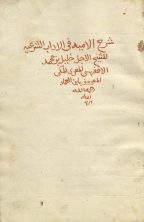 شرح الاميه في الاداب الشرعيه
للشيخ الاجل خليل بن محمد
الاقفهسي المصري المكي
المعروف بابن العماد
رحمه الله